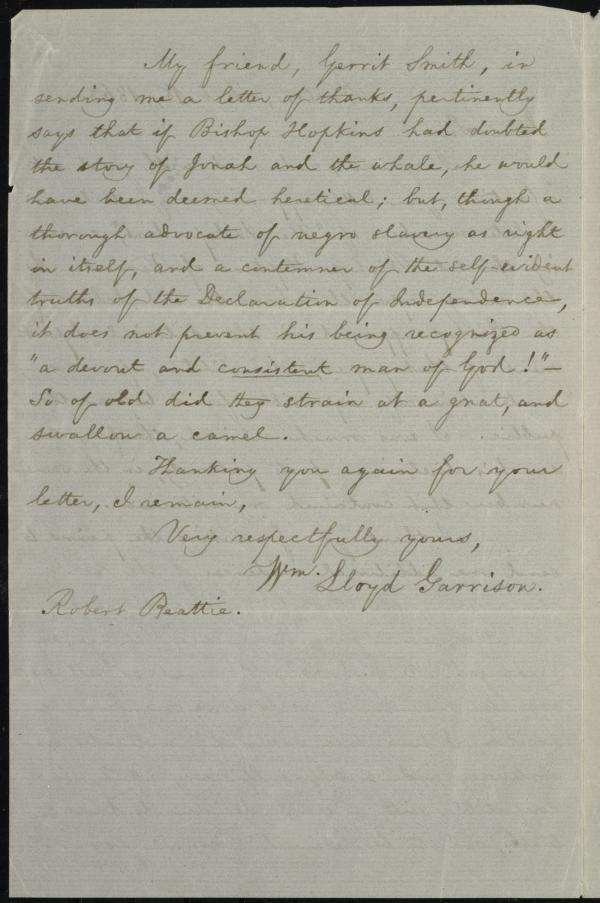 My friend, Gerrit Smith, in
sending me a letter of thanks, pertinently
says that if Bishop Hopkins had doubted
the story of Jonah and the whale, he would
have been deemed heretical; but, though a
thorough advocate of negro slavery as right
in itself, and a contemner of the self-evident
truths of the Declaration of Independence,
it does not prevent his being recognized as
"a devout and consistent man of God!"—
So of old did they strain at a gnat, and
swallow a camel.
Thanking you again for your
letter, I remain,
Very respectfully yours,
Wm. Lloyd Garrison.
Robert Beattie.